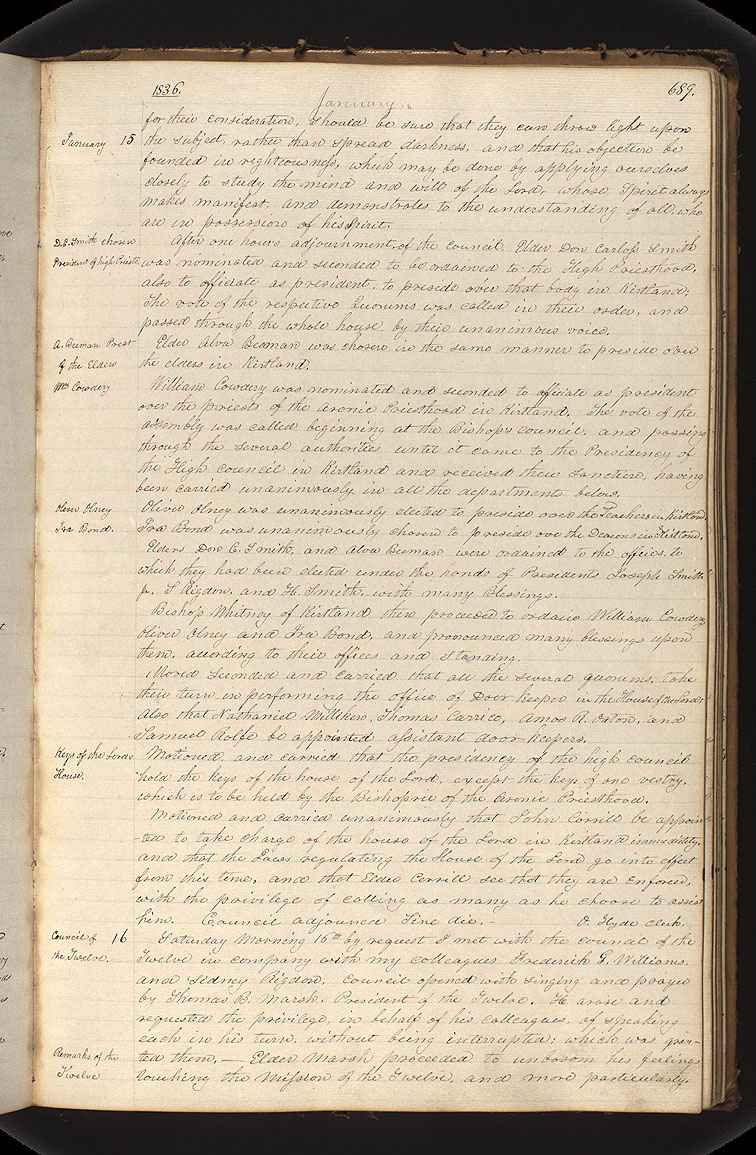 1836.
689.
January.
for their consideration, should be sure that they can throw light upon
January 15
the subject, rather than spread darkness, and that his objection be
founded in righteousness, which may be done by applying ourselves
closely to study the mind and will of the Lord, whose Spirit always
makes manifest, and demonstrates to the understanding of all, who
are in possession of his Spirit.
D. C. Smith chosen
President of high Priests
After one hours adjournment, of the council, Elder Don Carloss Smith
was nominated and seconded to be ordained to the High Priesthood,
also to officiate as president, to preside over that body in Kirtland;
The vote of the respective Quorums was called in their order, and
passed through the whole house by their unanimous voice.
A. Beeman Prest
of the Elders
Elder Alva Beeman was chosen in the same manner to preside over
the elders in Kirtland.
Wm Cowdery
William Cowdery was nominated and seconded to officiate as president
over the priests of the Aronic Priesthood in Kirtland. The vote of the
assembly was called beginning at the Bishops council, and passing
through the several authorities until it came to the Presidency of
the High council in Kirtland and received their sanction, having
been carried unanimously in all the departments below.
Oliver Olney
Ira Bond.
Oliver Olney was unanimously elected to preside over the Teachers in Kirtland,
Ira Bond was unanimously chosen to preside over the Deacons in Kirtland,
Elders Don C. Smith, and Alva Beeman were ordained to the offices, to
which they had been elected under the hands of Presidents Joseph Smith
jr. S Rigdon, and H. Smith, with many Blessings.
Bishop Whitney of Kirtland then proceeded to ordain William Cowdery,
Oliver Olney and Ira Bond, and pronounced many blessings upon
them, according to their offices and standing.
Moved seconded and carried that all the several quorums, take
their turn in performing the office of Door keeper in the House of the Lord:
Also that Nathaniel Milliken, Thomas Carrico, Amos R. Orton, and
Samuel Rolfe be appointed assistant door-keepers.
Keys of the Lords
House.
Motioned, and carried that the presidency of the high council
hold the keys of the house of the Lord, except the keys of one vestry,
which is to be held by the Bishopric of the Aronic Priesthood.
Motioned and carried unanimously that John Corrill be appoin-
-ted to take charge of the house of the Lord in Kirtland immediately,
and that the Laws regulating the House of the Lord go into effect
from this time, and that Elder Corrill see that they are Enforced,
with the privilege of calling as many as he choose to assist
him. Council adjourned Sine die.— O. Hyde clerk.
Council of 16
the Twelve.
Saturday Morning 16th by request I met with the council of the
Twelve in company with my colleagues Frederick G. Williams,
and Sidney Rigdon. Council opened with singing and prayer
by Thomas B. Marsh, President of the Twelve. He arose and
requested the privilege, in behalf of his colleagues, of speaking
each in his turn, without being interrupted; which was gran-
Remarks of the
Twelve
ted them.— Elder Marsh proceeded to unbosom his feelings
touching the Mission of the Twelve, and more particularly,